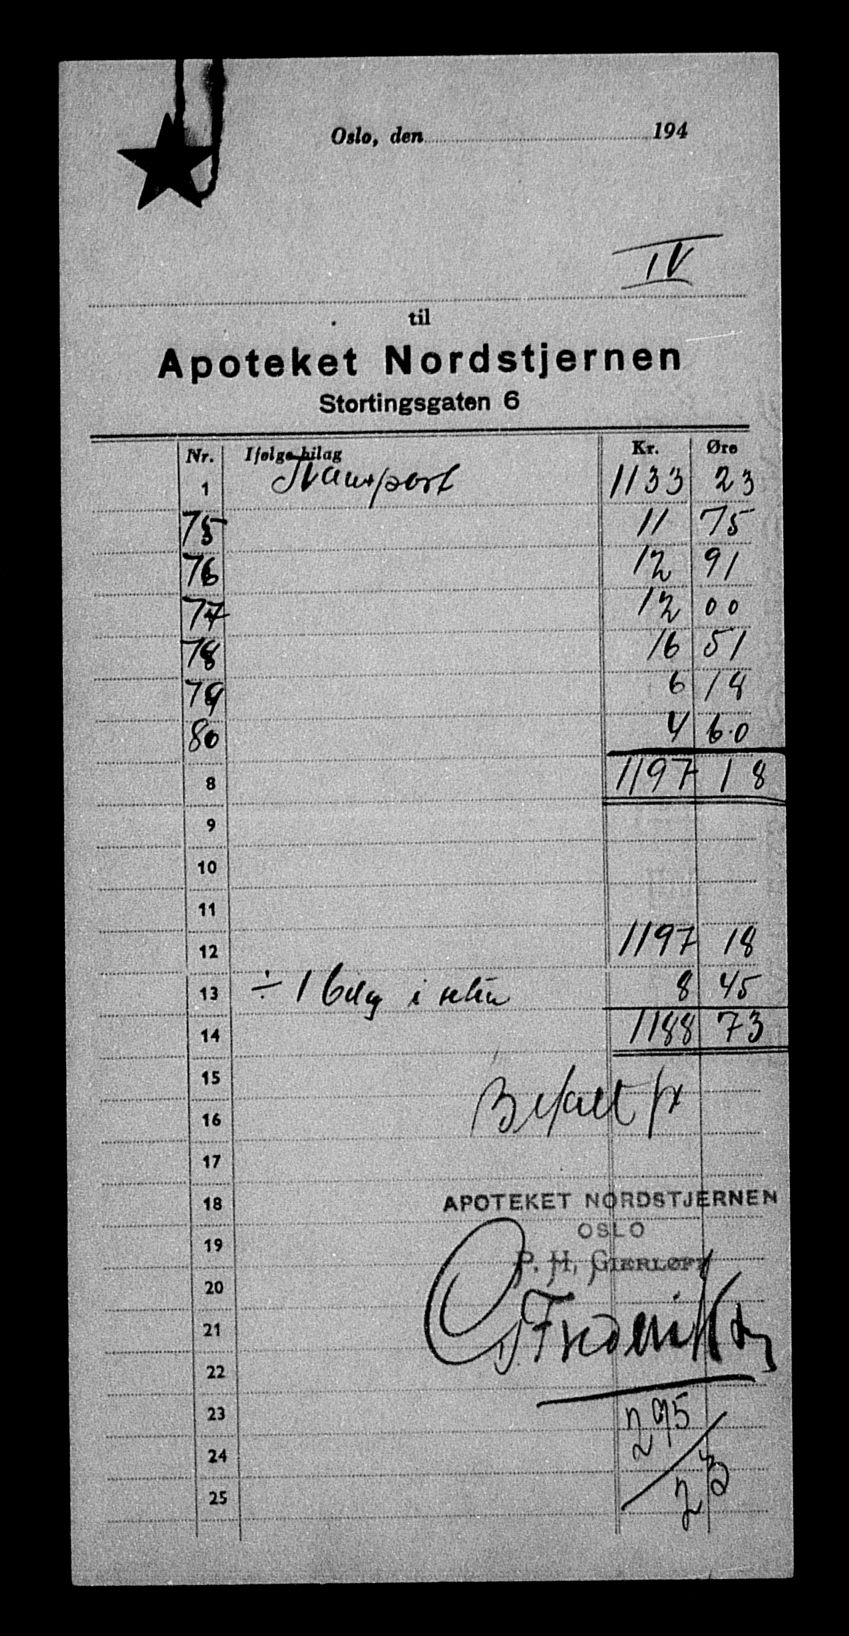 Oslo, den 194
IV
til
Apoteket Nordstjernen
Stortingsgaten 6
Nr. Ifølge bilag Kr. Øre
1 Transport 1133 23
75 11 75
76 12 91
77 12 00
78 16 51
79 6 18
80 4 60
8 1197 18
9
10
11
12 1197 18
13 ÷ 1 bilag i retur 8 45
14 1188 73
15
16 Betalt
17
18 APOTEKET NORDSTJERNEN
19 OSLO
20 P. H. GIERLØFF
21
22
23 295
24
25 23